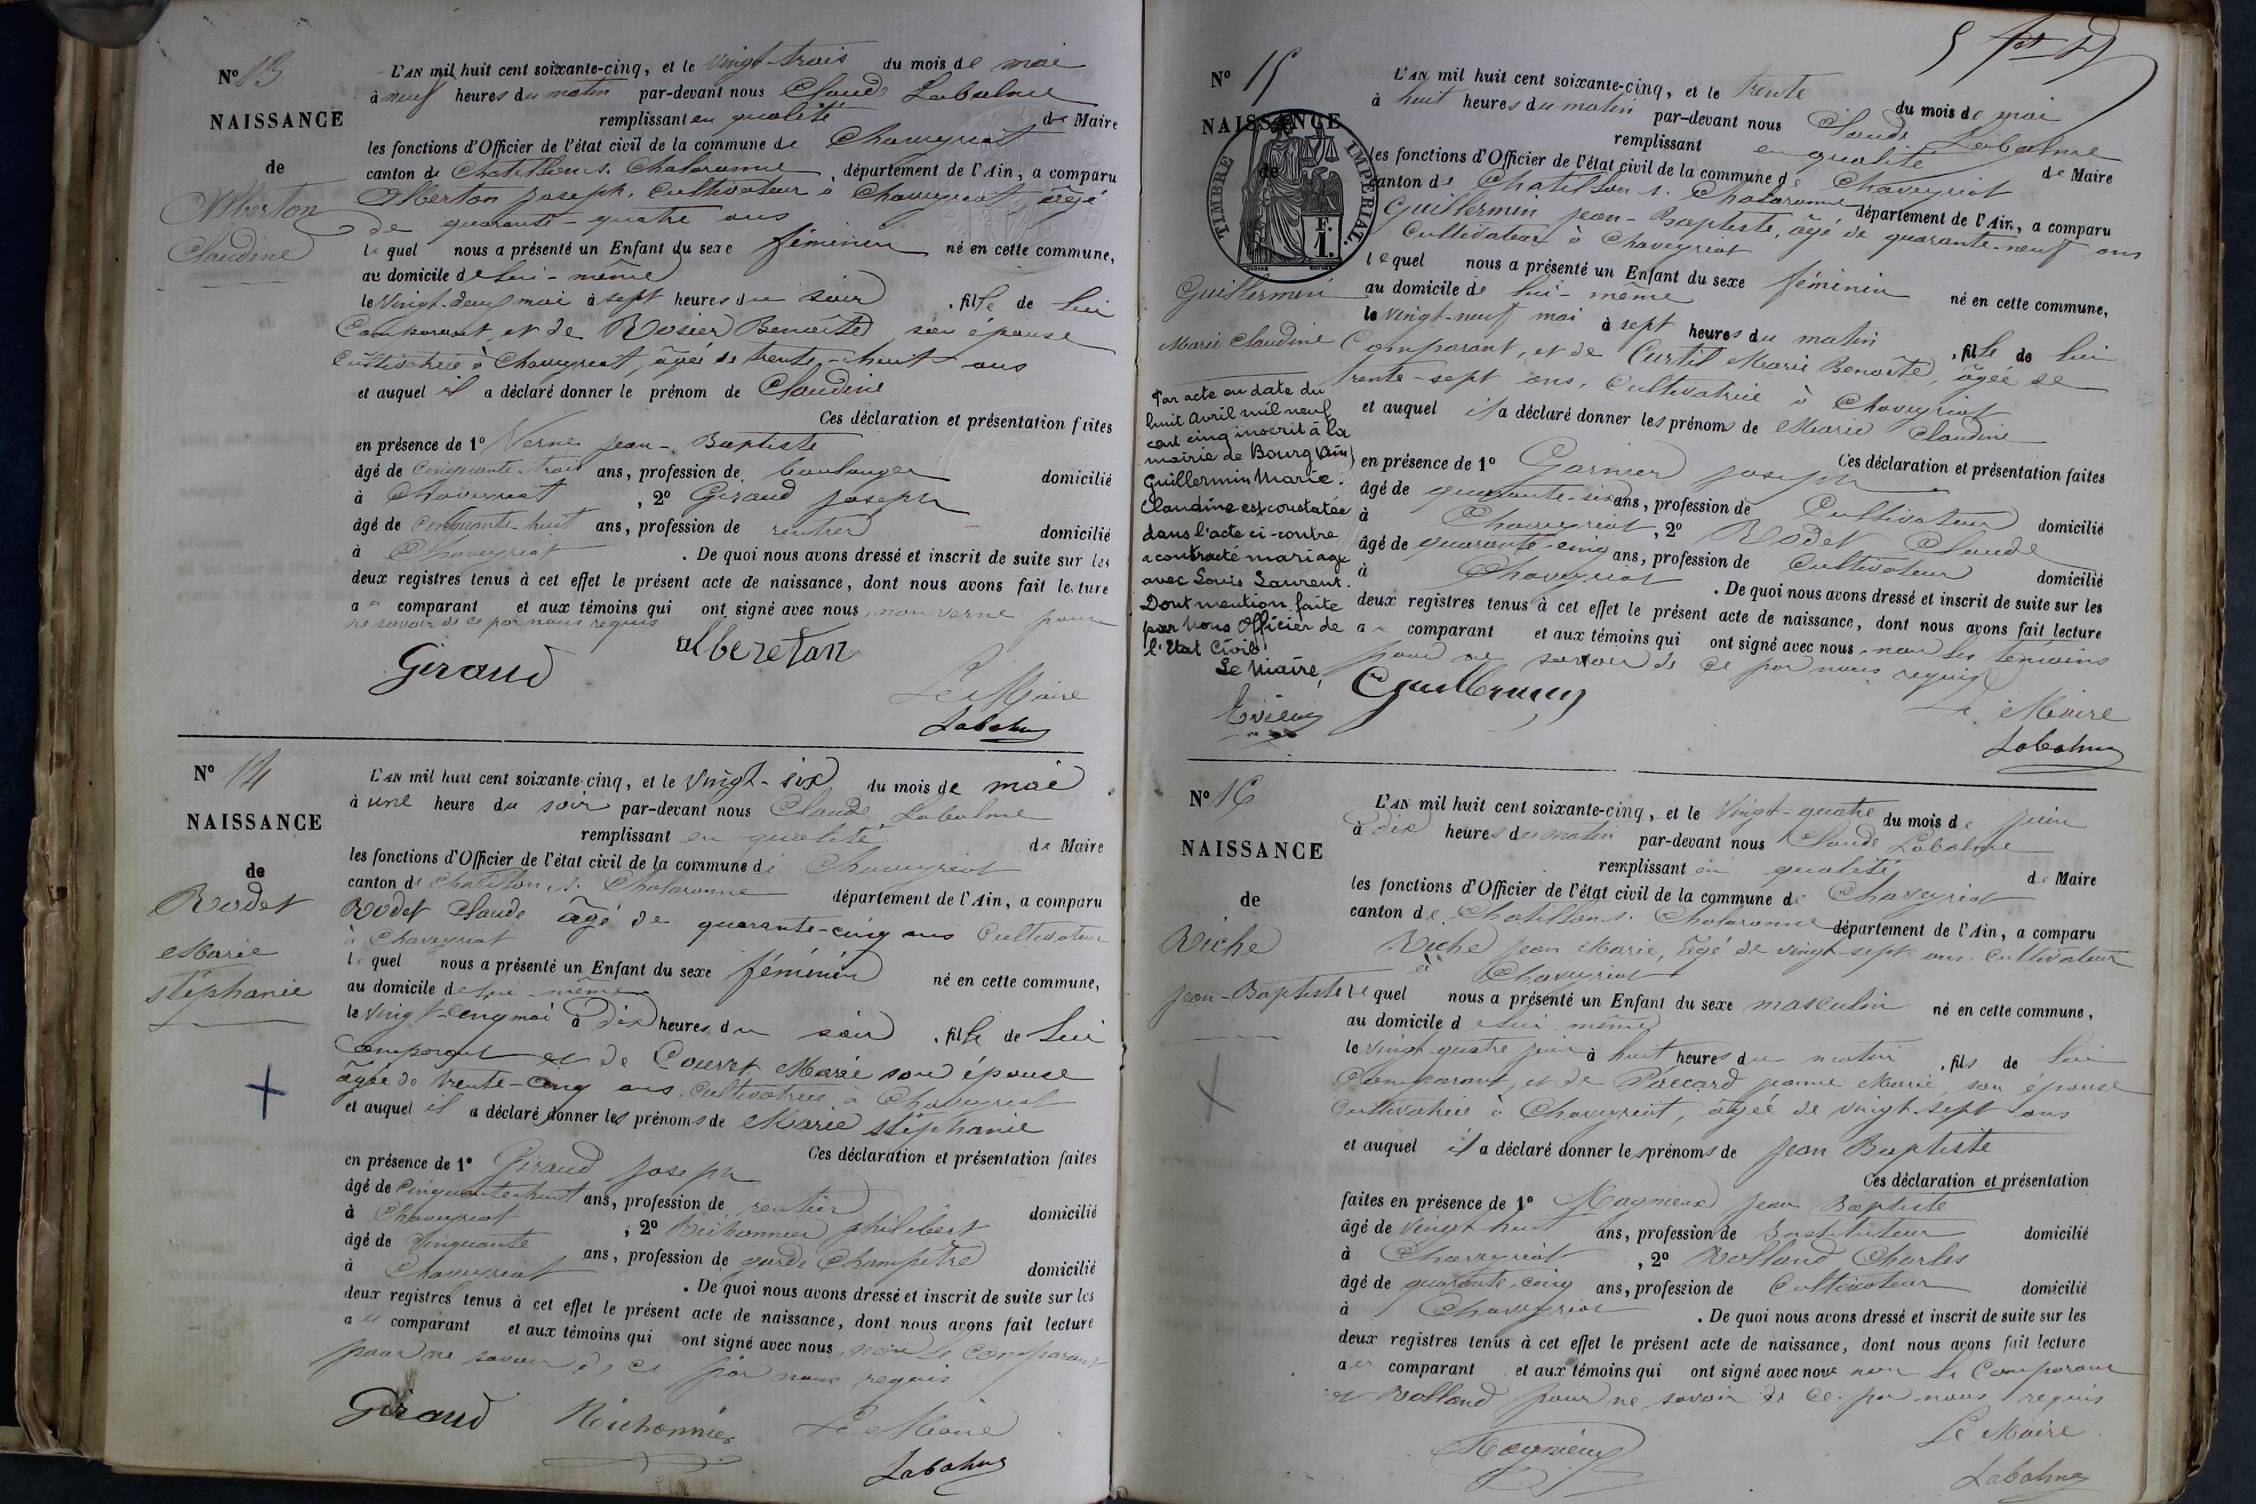 N° 13
NAISSANCE
de
Alberton
Claudine
L'AN mil huit cent soixante-cinq, et le vingt-trois du mois de mai
à neuf heures du matin par-devant nous Claude Labalme
remplissant en qualité de Maire
les fonctions d'Officier de l'état civil de la commune de Chaveyriat
canton de Chatillon s. Chalaronne, département de l'Ain, a comparu
Alberton joseph, cultivateur à Chaveyriat, âgé
de quarante-quatre ans
lequel nous a présenté un Enfant du sexe féminin né en cette commune,
au domicile de lui-même
le vingt-deux mai à sept heures du soir, fille de lui
Comparant, et de Rosier Benoîte son épouse
Cultivatrice à Chaveyriat, âgée de trente-huit ans
et auquel il a déclaré donner le prénom de Claudine
Ces déclaration et présentation faites
en présence de 1° Verne jean-Baptiste
âgé de cinquante-trois ans, profession de boulanger domicilié
à Chaveyriat, 2° Giraud joseph
âgé de cinquante-huit ans, profession de rentier domicilié
à Chaveyriat. De quoi nous avons dressé et inscrit de suite sur les
deux registres tenus à cet effet le présent acte de naissance, dont nous avons fait lecture
au comparant et aux témoins qui ont signé avec nous, non verne pour
ne savoir de ce par nous requis
Giraud alberetan
Le Maire
Labalme
N° 14
NAISSANCE
de
Rodet
Marie
stéphanie
L'AN mil huit cent soixante-cinq, et le vingt-six du mois de mai
à une heure du soir par-devant nous Claude Labalme
remplissant en qualité de Maire
les fonctions d'Officier de l'état civil de la commune de Chaveyriat
canton de Chatillon s. Chalaronne département de l'Ain, a comparu
Rodet Claude âgé de quarante-cinq ans Cultivateur
à Chaveyriat
lequel nous a présenté un Enfant du sexe féminin né en cette commune,
au domicile de lui-même
le vingt-cinq mai à dix heures du soir, fille de lui
Comparant et de Couvet Marie son épouse
âgée de trente-cinq ans, cultivatrice à Chaveyriat
et auquel il a déclaré donner les prénoms de Marie stéphanie
Ces déclaration et présentation faites
en présence de 1° Giraud joseph
âgé de cinquante-huit ans, profession de rentier domicilié
à Chaveyriat, 2° Bichonnier philibert
âgé de cinquante ans, profession de garde Champêtre domicilié
à Chaveyriat. De quoi nous avons dressé et inscrit de suite sur les
deux registres tenus à cet effet le présent acte de naissance, dont nous avons fait lecture
au comparant et aux témoins qui ont signé avec nous, non le comparant
pour ne savoir de ce par nous requis
Giraud Bichonnier Le Maire
Labalme
N° 15
NAISSANCE
de
TIMBRE IMPERIAL.
F. 1.
Guillermin
Marie Claudine
Par acte en date du
huit Avril mil neuf
cent cinq inscrit à la
mairie de Bourg (Ain)
Guillermin Marie
Claudine est constatée
dans l'acte ci-contre
a contracté mariage
avec Louis Laurent.
Dont mention faite
par Nous Officier de
l'Etat Civil
Le Maire,
L'AN mil huit cent soixante-cinq, et le trente du mois de mai
à huit heures du matin par-devant nous Claude Labalme
remplissant en qualité de Maire
les fonctions d'Officier de l'état civil de la commune de Chaveyriat
canton de Chatillon s. Chalaronne département de l'Ain, a comparu
Guillermin jean-Baptiste, âgé de quarante-neuf ans
Cultivateur à Chaveyriat
lequel nous a présenté un Enfant du sexe féminin né en cette commune,
au domicile de lui-même
le vingt-neuf mai à sept heures du matin, fille de lui
Comparant, et de Curtil Marie Benoîte, âgée de
trente-sept ans, cultivatrice à Chaveyriat
et auquel il a déclaré donner les prénoms de Marie Claudine
Ces déclaration et présentation faites
en présence de 1° Garnier joseph
âgé de quarante-six ans, profession de Cultivateur domicilié
à Chaveyriat, 2° Rodet Claude
âgé de quarante-cinq ans, profession de Cultivateur domicilié
à Chaveyriat. De quoi nous avons dressé et inscrit de suite sur les
deux registres tenus à cet effet le présent acte de naissance, dont nous avons fait lecture
au comparant et aux témoins qui ont signé avec nous, non les témoins
pour ne savoir de ce par nous requis
Guillermin Le Maire
Labalme
N° 16
NAISSANCE
de
Riche
Jean-Baptiste
L'AN mil huit cent soixante-cinq, et le vingt-quatre du mois de juin
à dix heures du matin par-devant nous Claude Labalme
remplissant en qualité de Maire
les fonctions d'Officier de l'état civil de la commune de Chaveyriat
canton de Chatillon s. Chalaronne département de l'Ain, a comparu
Riche jean Marie, âgé de vingt-sept ans, cultivateur
à Chaveyriat
lequel nous a présenté un Enfant du sexe masculin né en cette commune,
au domicile de lui même
le vingt-quatre juin à huit heures du matin, fils de lui
Comparant, et de Paccard jeanne Marie, son épouse
Cultivatrice à Chaveyriat, âgée de vingt-sept ans
et auquel il a déclaré donner les prénoms de jean Baptiste
Ces déclaration et présentation
faites en présence de 1° Magnieux jean Baptiste
âgé de vingt-huit ans, profession de Instituteur domicilié
à Chaveyriat, 2° Rolland Charles
âgé de quarante-cinq ans, profession de Cultivateur domicilié
à Chaveyriat. De quoi nous avons dressé et inscrit de suite sur les
deux registres tenus à cet effet le présent acte de naissance, dont nous avons fait lecture
au comparant et aux témoins qui ont signé avec nous non le Comparant
et Rolland pour ne savoir de ce par nous requis
Magnieux Le Maire
Labalme